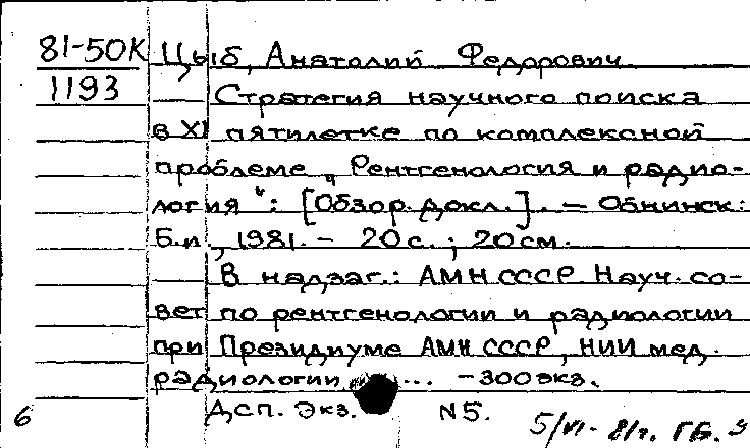 81-50К Цыб, Анатолий Федорович
1193 Стратегия научного поиска
в XI пятилетке по комплексной
проблеме „Рентгенология и радио-
логия“: [Обзор. докл.]. — Обнинск:
Б.и., 1981. - 20 с. ; 20 см.
В надзаг.: АМН СССР Науч. со-
вет по рентгенологии и радиологии
при Президиуме АМН СССР, НИИ мед.
радиологии ... - 300 экз.
6 ДСП. Экз. N5. 5/VI - 81г. ГБ. 3